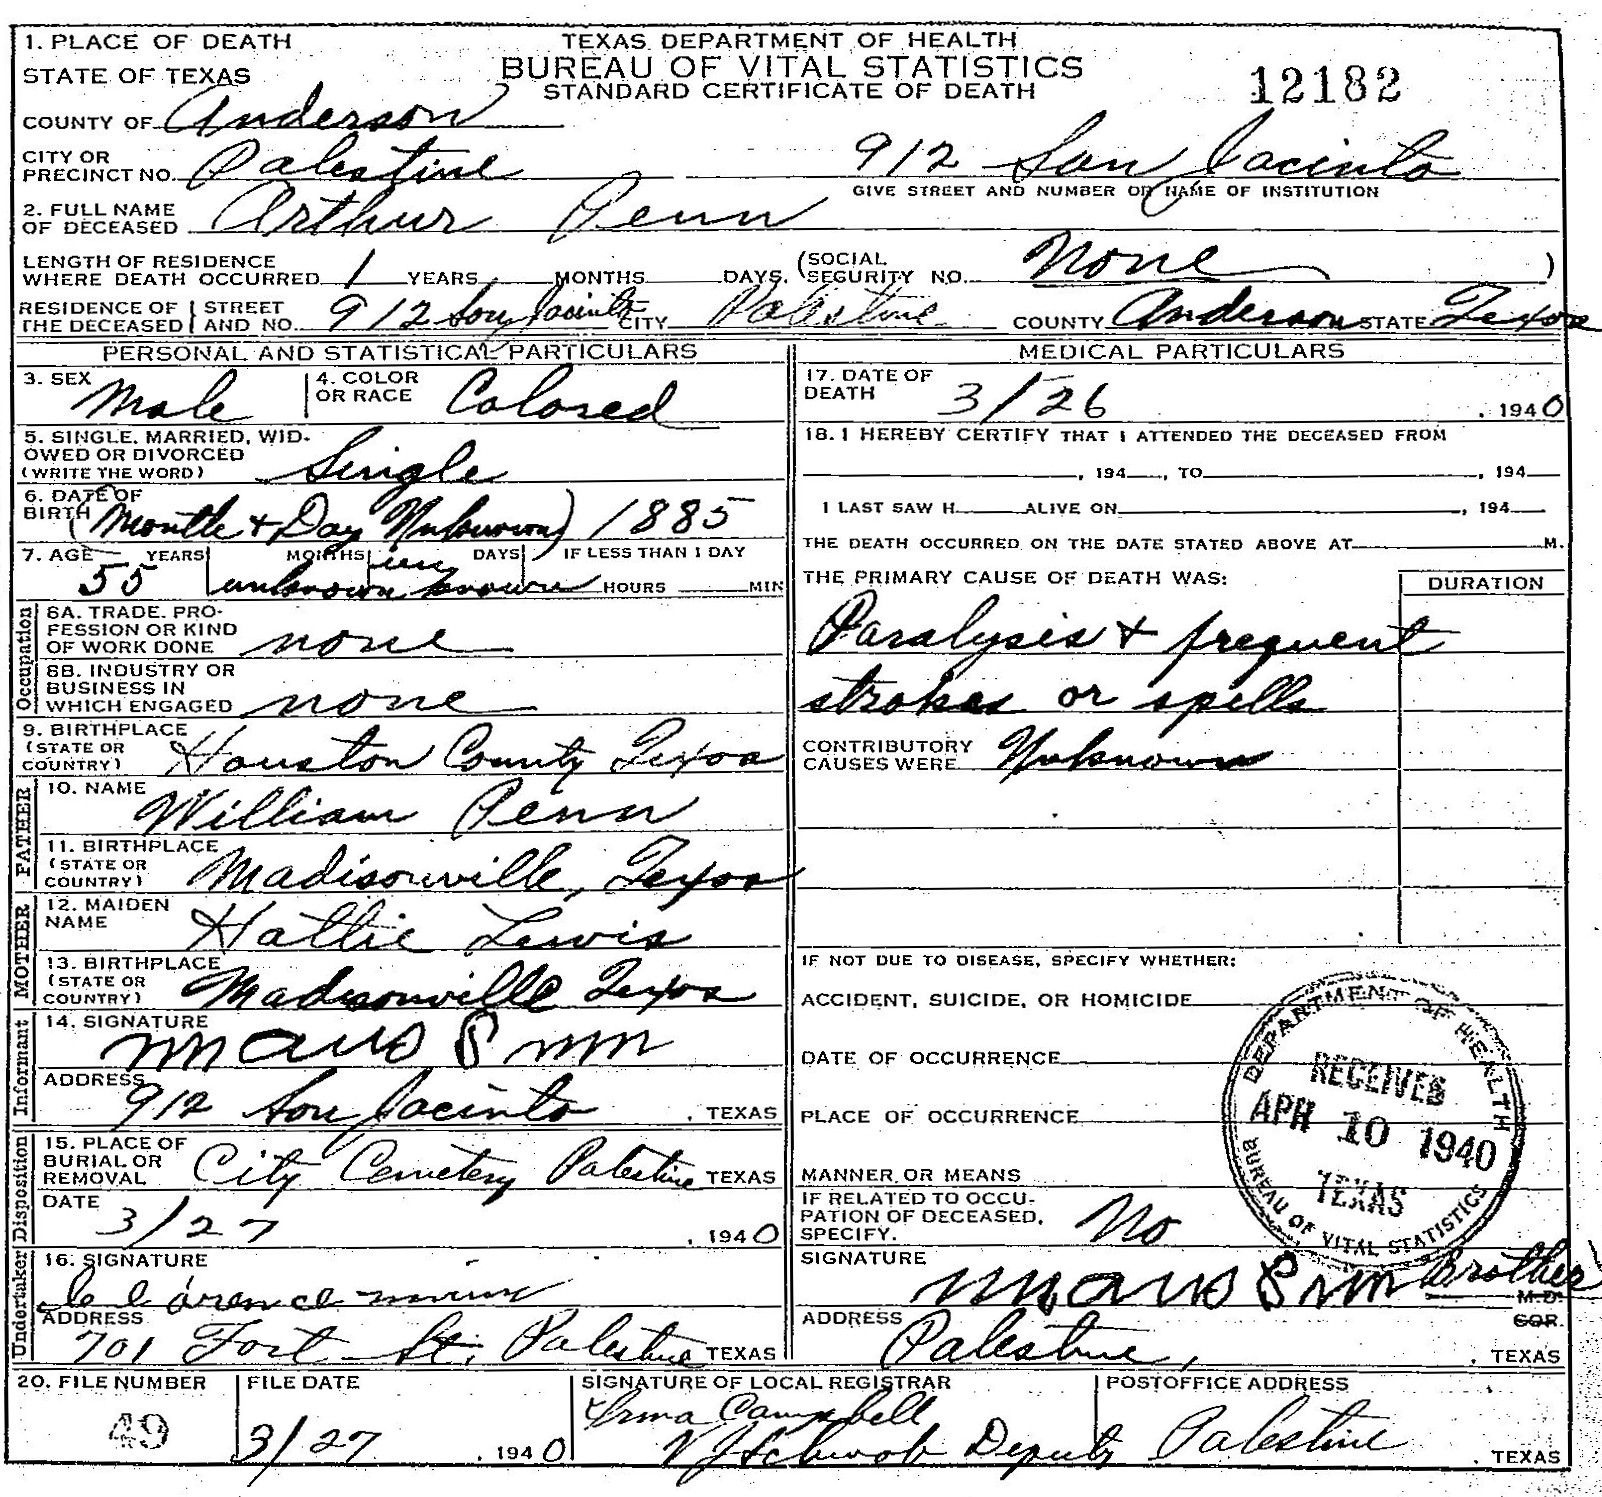 1. PLACE OF DEATH
STATE OF TEXAS
TEXAS DEPARTMENT OF HEALTH
BUREAU OF VITAL STATISTICS
STANDARD CERTIFICATE OF DEATH
12182
COUNTY OF Anderson
CITY OR PRECINCT NO. Palestine 912 San Jacinto
GIVE STREET AND NUMBER OR NAME OF INSTITUTION
2. FULL NAME OF DECEASED Arthur Penn
LENGTH OF RESIDENCE WHERE DEATH OCCURRED 1 YEARS MONTHS DAYS. (SOCIAL SECURITY NO. None )
RESIDENCE OF THE DECEASED STREET AND NO. 912 San Jacinto CITY Palestine COUNTY Anderson STATE Texas
PERSONAL AND STATISTICAL PARTICULARS
3. SEX Male 4. COLOR OR RACE Colored
5. SINGLE, MARRIED, WIDOWED OR DIVORCED (WRITE THE WORD) Single
6. DATE OF BIRTH (Month + Day Unknown) 1885
7. AGE YEARS MONTHS DAYS IF LESS THAN 1 DAY
55 unknown unknown HOURS MIN
Occupation
8A. TRADE, PROFESSION OR KIND OF WORK DONE none
8B. INDUSTRY OR BUSINESS IN WHICH ENGAGED none
9. BIRTHPLACE (STATE OR COUNTRY) Houston County Texas
FATHER
10. NAME William Penn
11. BIRTHPLACE (STATE OR COUNTRY) Madisonville, Texas
MOTHER
12. MAIDEN NAME Hattie Lewis
13. BIRTHPLACE (STATE OR COUNTRY) Madisonville Texas
Informant
14. SIGNATURE
ADDRESS 912 San Jacinto , TEXAS
Disposition
15. PLACE OF BURIAL OR REMOVAL City Cemetery Palestine TEXAS
DATE 3/27 , 1940
Undertaker
16. SIGNATURE Clarence
ADDRESS 701 Fort St. Palestine TEXAS
MEDICAL PARTICULARS
17. DATE OF DEATH 3/26 , 1940
18. I HEREBY CERTIFY THAT I ATTENDED THE DECEASED FROM
, 194 , TO , 194
I LAST SAW H ALIVE ON , 194
THE DEATH OCCURRED ON THE DATE STATED ABOVE AT M.
THE PRIMARY CAUSE OF DEATH WAS: DURATION
Paralysis + frequent
strokes or spells
CONTRIBUTORY CAUSES WERE Unknown
IF NOT DUE TO DISEASE, SPECIFY WHETHER:
ACCIDENT, SUICIDE, OR HOMICIDE
DATE OF OCCURRENCE
PLACE OF OCCURRENCE
MANNER OR MEANS
IF RELATED TO OCCUPATION OF DECEASED, SPECIFY. No
SIGNATURE Brother
M.D.
COR.
ADDRESS Palestine, , TEXAS
DEPARTMENT OF HEALTH
RECEIVED
APR 10 1940
TEXAS
BUREAU OF VITAL STATISTICS
20. FILE NUMBER FILE DATE SIGNATURE OF LOCAL REGISTRAR POSTOFFICE ADDRESS
49 3/27 , 1940 Irma Campbell
Deputy Palestine , TEXAS